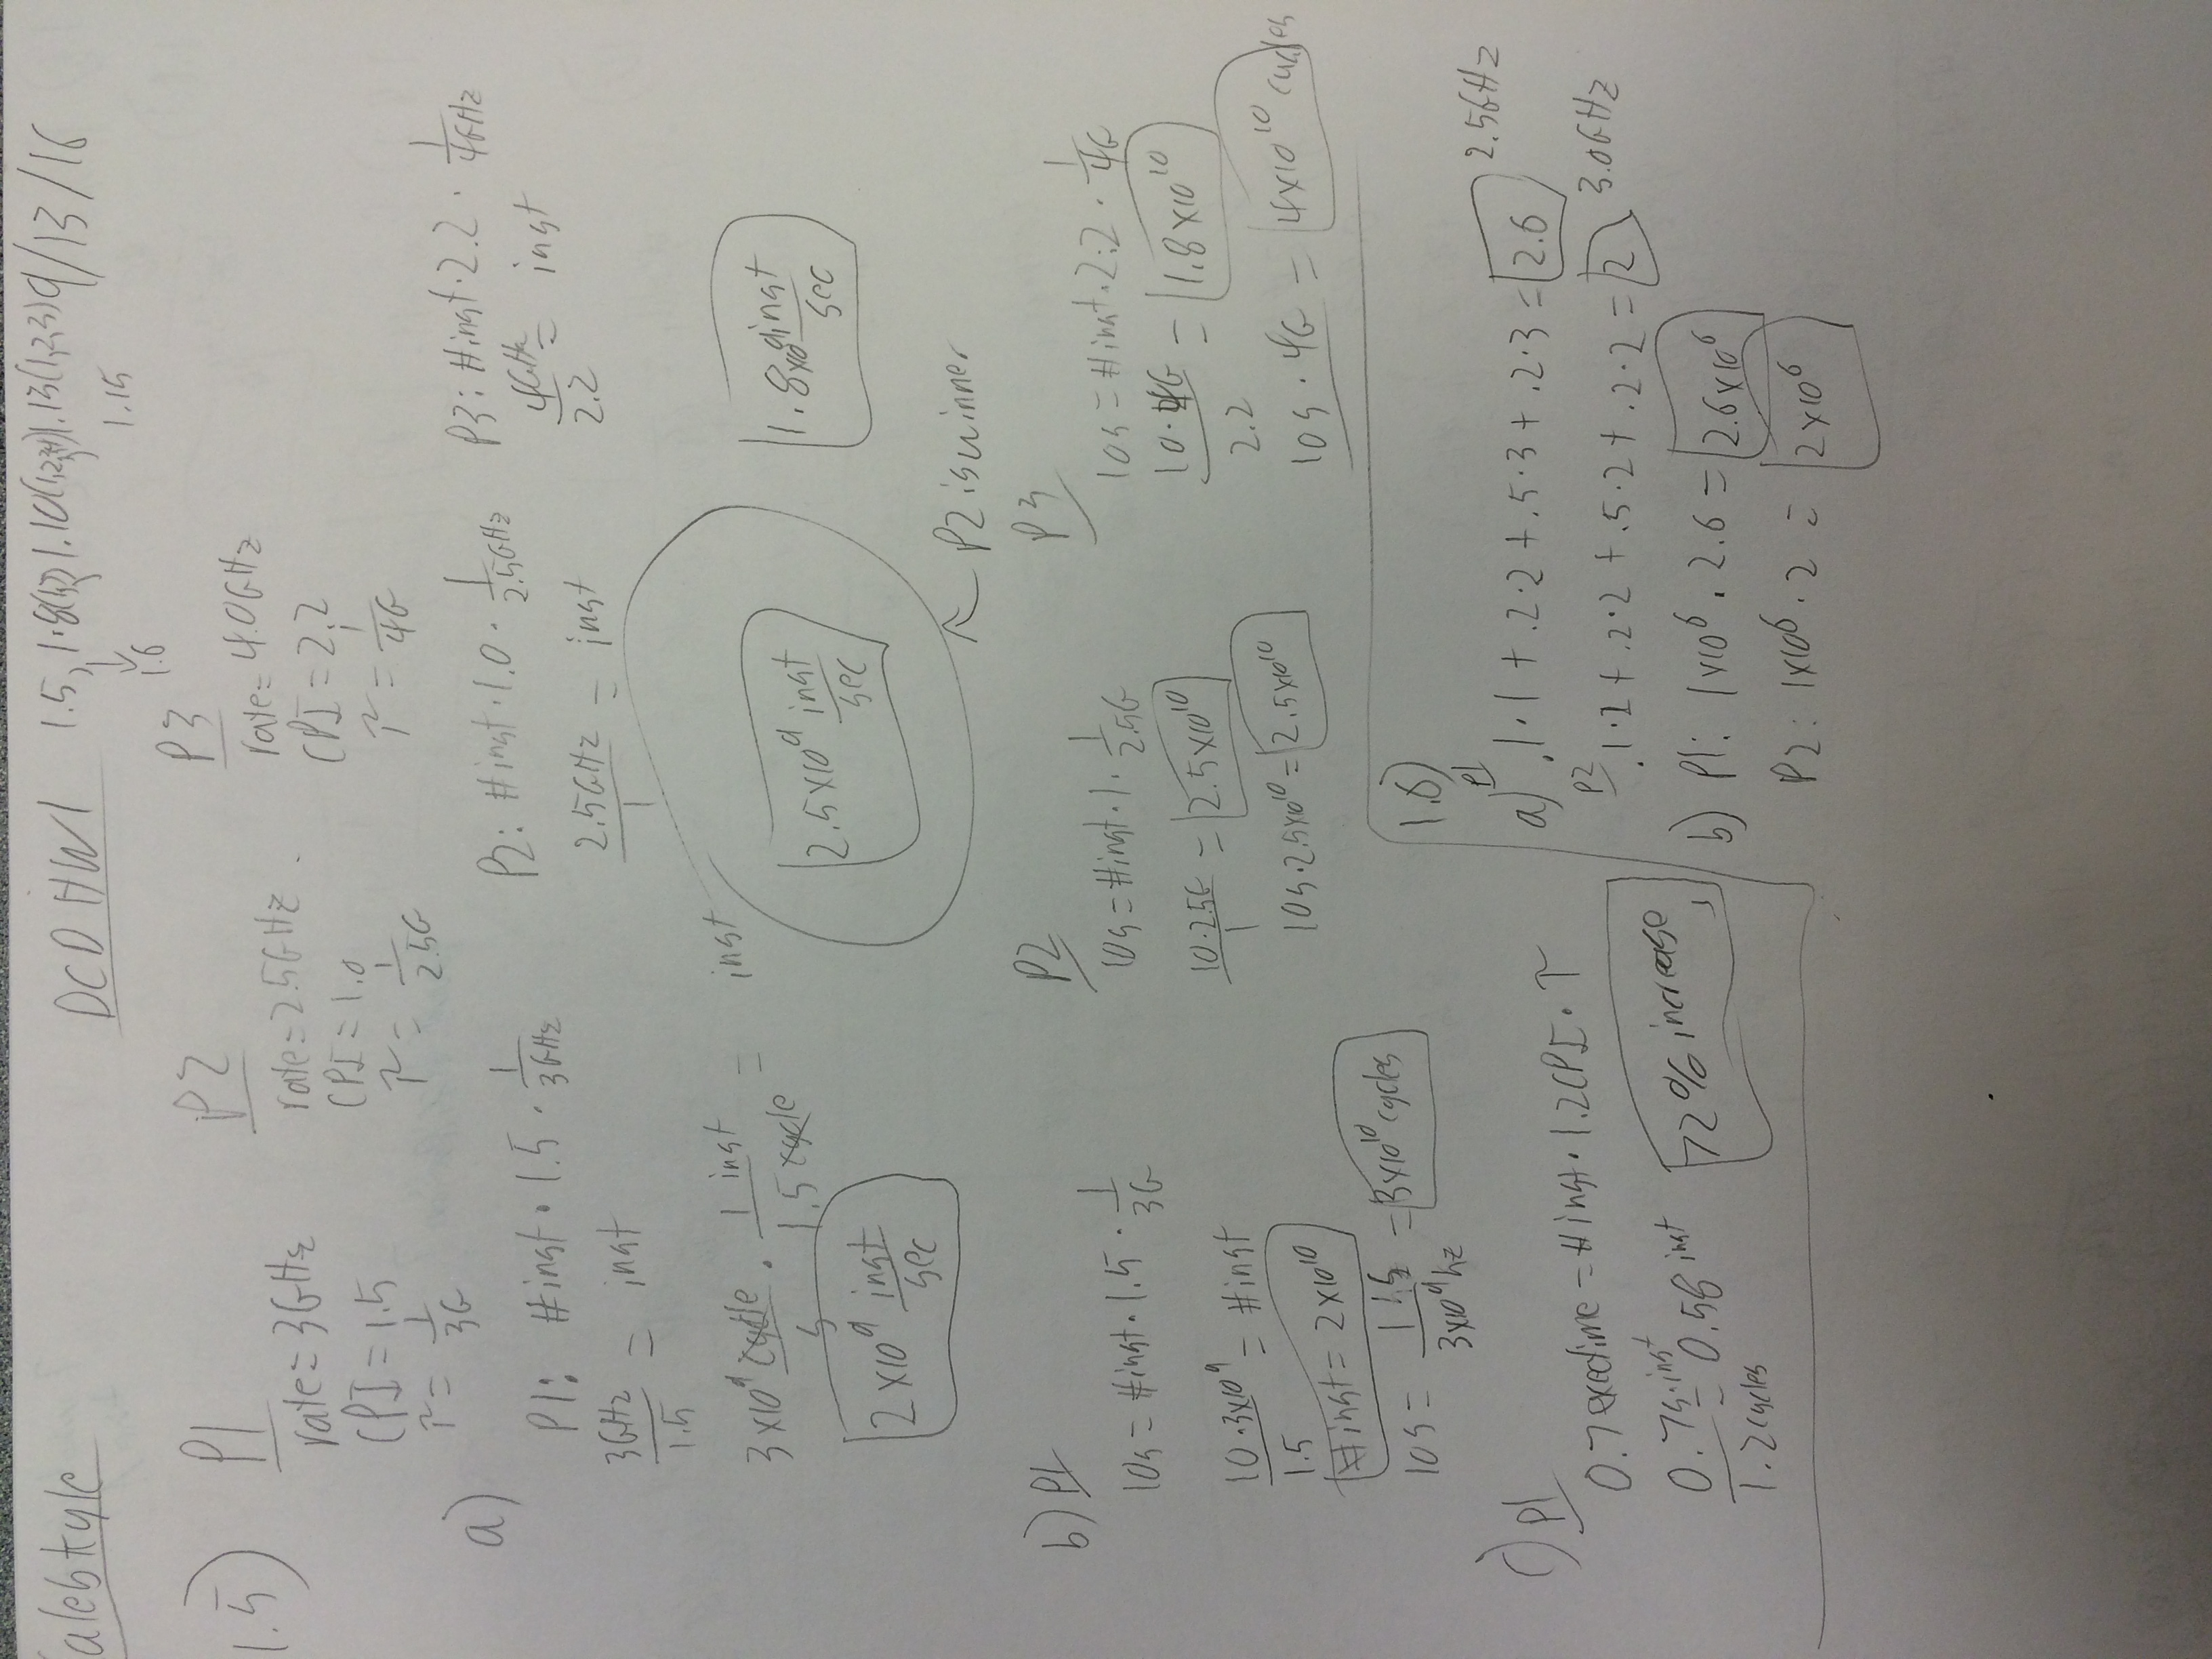 DCD HW1 1.5, 1.8(1,2), 1.10(1,2,4), 1.13(1,2,3) 9/13/16
1.15
↓
1.6
1.5)
P1
rate = 3GHz
CPI = 1.5
τ = 1/3G
P2
rate = 2.5GHz
CPI = 1.0
τ = 1/2.5G
P3
rate = 4.0GHz
CPI = 2.2
τ = 1/4G
a)
P1: #inst · 1.5 · 1/3GHz
3GHz/1.5 = inst
3x10^9 cycle/s · 1 inst/1.5 cycle = inst
2x10^9 inst/sec
P2: #inst · 1.0 · 1/2.5GHz
2.5GHz/1 = inst
2.5x10^9 inst/sec
P3: #inst · 2.2 · 1/4GHz
4GHz/2.2 = inst
1.8x10^9 inst/sec
P2 is winner
b) P1
10s = #inst · 1.5 · 1/3G
10·3x10^9/1.5 = #inst
#inst = 2x10^10
10s = 1/3x10^9hz = 3x10^10 cycles
P2
10s = #inst · 1 · 1/2.5G
10·2.5G/1 = 2.5x10^10
10s·2.5x10^10 = 2.5x10^10
P3
10s = #inst · 2.2 · 1/4G
10·4G/2.2 = 1.8x10^10
10s · 4G = 4x10^10 cycles
c) P1
0.7exectime = #inst · 1.2CPI · τ
0.7s·inst/1.2cycles = 0.58 inst
72% increase
1.6)
a) P1
.1·1 + .2·2 + .5·3 + .2·3 = 2.6 2.5GHz
P2
.1·2 + .2·2 + .5·2 + .2·2 = 2 3.0GHz
b) P1: 1x10^6 · 2.6 = 2.6x10^6
P2: 1x10^6 · 2 = 2x10^6